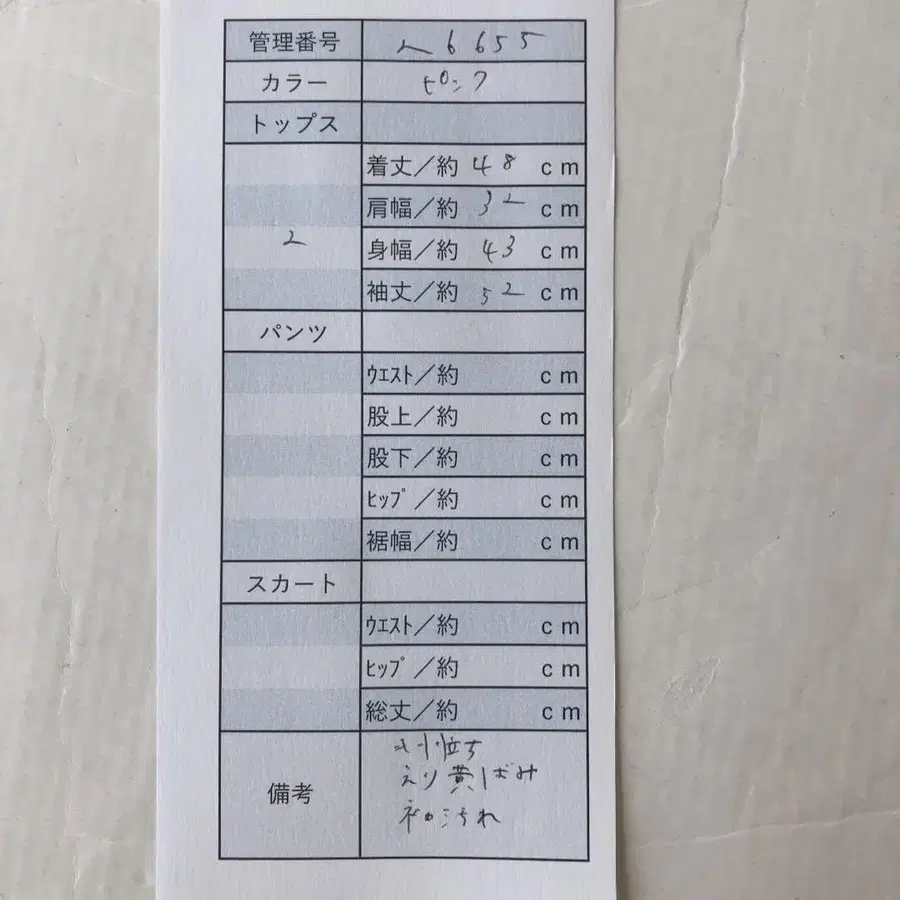 管理番号 26655
カラー ピンク
トップス
着丈／約 48 cm
肩幅／約 32 cm
2
身幅／約 43 cm
袖丈／約 52 cm
パンツ
ｳｴｽﾄ／約 cm
股上／約 cm
股下／約 cm
ﾋｯﾌﾟ／約 cm
裾幅／約 cm
スカート
ｳｴｽﾄ／約 cm
ﾋｯﾌﾟ／約 cm
総丈／約 cm
備考
立ち
えり黄ばみ
袖汚れ